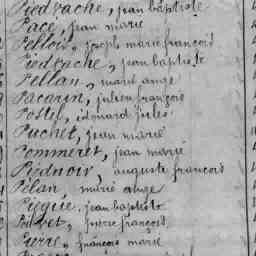 Piedvache, jean baptiste
Pacé, jean marie
Pellois, joseph marie françois
Piedvache, jean baptiste
Pellan, marie ange
Pacarin, julien françois
Postel, édouard jules
Puchet, jean marie
Pommeret, jean marie
Piednoir, auguste françois
Pélan, marie ange
Piégue, jean baptiste
pierre françois
Pierre, françois marie